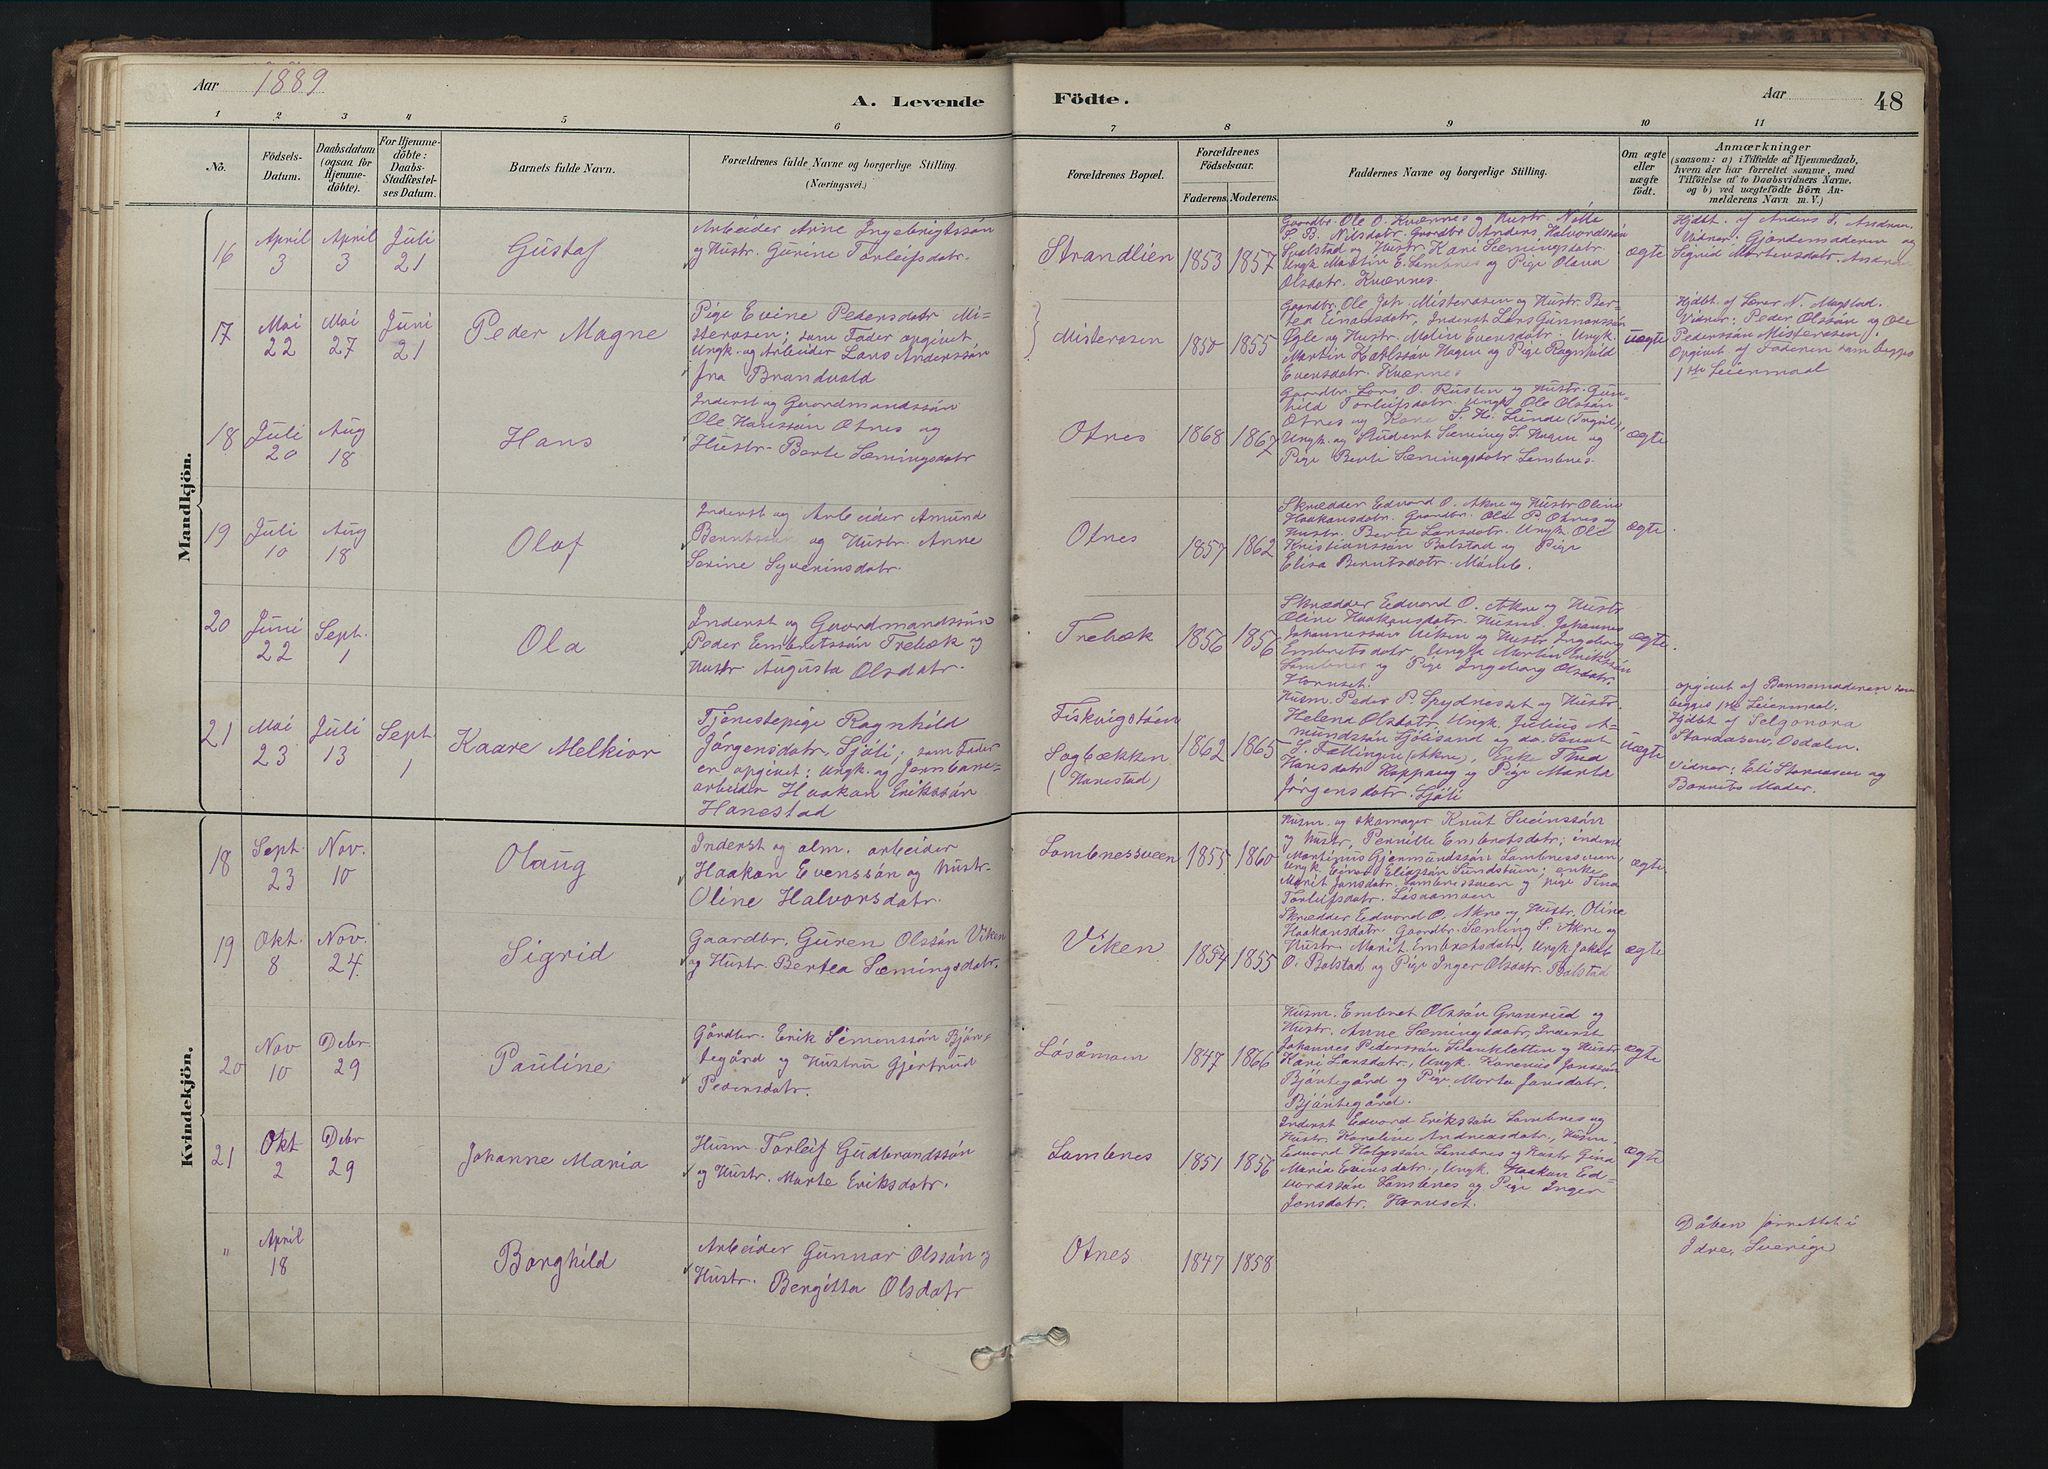 Aar 1889
A. Levende Födte.
Aar 48
1 2 3 4 5 6 7 8 9 10 11
No.
Födsels-
Datum.
Daabsdatum
(ogsaa for
Hjemme-
döbte).
For Hjemme-
döbte:
Daabs-
Stadfæstel-
ses Datum.
Barnets fulde Navn.
Forældrenes fulde Navne og borgerlige Stilling.
(Næringsvei.)
Forældrenes Bopæl.
Forældrenes
Födselsaar.
Faderens. Moderens.
Faddernes Navne og borgerlige Stilling.
Om ægte
eller
uægte
födt.
Anmærkninger
(saasom: a) i Tilfælde af Hjemmedaab,
hvem der har forrettet samme, med
Tilföielse af to Daabsvidners Navne,
og b) ved uægtefödte Börn An-
melderens Navn m. V.)
Mandkjön.
16
April
3
April
3
Juli
21
Gustaf
Arbeider Arne Ingebrigtssön
og Hustr. Gurine Torleifsdatr.
Strandlien
1853 1857
Gaardbr. Ole O. Kværnes og Hustr. Nille
S. B. Nilsdatr. Gaardbr. Anders Halvorssön
og Hustr. Kari Sæmingsdatr.
Ungk. Martin E. Lombnes og Pige Olava
Olsdatr. Kværnes.
ægte
Hjdbt. af Anders
Vidner: Gjordemoderen og
Sigrid Mortensdatr.
17
Mai
22
Mai
27
Juni
21
Peder Magne
Pige Evine Pedersdatr Mi-
sterosen; som Fader opgivet,
Ungk. og Arbeider Lars Anderssön
fra Brandvold
Misterosen
1850 1855
Gaardbr. Ole Joh. Misterosen og Hustr. Ber-
tea Einarsdatr, Inderst Lars Gunnarssön
Øgle og Hustr. Malin Evensdatr. Ungk.
Martin Karlssön Hagen og Pige Ragnhild
Evensdatr. Kværnes
uægte
Hjdbt. af Lærer N. Magstad.
Vidner: Peder Olssön og Ole
Pederssön Misterosen.
Opgivet af Faderen som begges
1ste Leiermaal
18
Juli
20
Aug
18
Hans
Inderst og Gaardmandssön
Ole Hanssön Otnes og
Hustr. Berte Sæmingsdatr
Otnes
1868 1867
Gaardbr. Lars O. Rusten og Hustr. Gun-
hild Torleifsdatr. Ungk. Ole Olssön
Otnes og Kone S. H. Lunde (Ingrid),
Ungk. og Student Sæming S. Hagen og
Pige Berte Sæmingsdatr. Lombnes.
ægte
19
Juli
10
Aug
18
Olaf
Inderst og Arbeider Amund
Berntssön og Hustr. Anne
Serine Syverinsdatr.
Otnes
1857 1862
Skrædder Edvard O. Akre og Hustr Oline
Haakansdatr. Gaardbr. Ole P. Otnes og
Hustr. Berte Larsdatr. Ungk. Ole
Kristianssön Bolstad og Pige
Elisa Berntsdatr.
ægte
20
Juni
22
Sept.
1
Ola
Inderst og Gaardmandssön
Peder Embretssön Trebæk og
Hustr Augusta Olsdatr.
Trebæk
1856 1856
Skrædder Edvard O. Akre og Hustr
Oline Haakansdatr. Husm. Johannes
Johannessön Viken og Hustr Ingeborg
Embretsdatr. Ungk. Martin Erikssön
Lombnes og Pige Ingeborg Olsdatr.
Hornset.
ægte.
21
Mai
23
Juli
13
Sept.
1
Kaare Melkior
Tjenestepige Ragnhild
Jörgensdatr. Sjöli; som Fader
er opgivet: Ungk. og Jernbane-
arbeider Haakan Erikssön
Hanestad
Fiskvigstöen
Sagbækken
(Hanestad)
1862 1865
Husm. Peder P. Spydneset og Hustr.
Helena Olsdatr. Ungk. Julius A-
mundssön Sjölisand og do. Senat
J. Fallingen (Akre), Enke Thea
Hansdatr Koppang og Pige Marta
Jörgensdatr. Sjöli
uægte
opgivet af Barnemoderen som
begges 1ste Leiermaal.
Hjdbt. af Selgonora
Storaasen, Osdalen.
Vidner: Eli Storaasen og
Barnets Moder.
Kvindekjön.
18
Sept.
23
Nov.
10
Olaug
Inderst og alm. arbeider
Haakan Evenssön og Hustr.
Oline Halvorsdatr.
Lombnessveen
1855 1860
Husm. og skomager Knut Sveinssön
og Hustr, Pernille Embretsdatr; inderst
Martinus Gjermundssön Lombnessveen,
Ungk. Einar Eliassön Sundstuen; enke
Marit Jonsdatr. Lombnessveen og pige Tina
Torleifsdatr. Lösaamoen
ægte.
19
Okt.
8
Nov.
24
Sigrid
Gaardbr. Guren Olssön Viken
og Hustr. Bertea Sæmingsdatr.
Viken
1854 1855
Skrædder Edvard O. Akre og Hustr. Oline
Haakansdatr. Gaardbr. Sæming S. Akre og
Hustr. Marit Embretsdatr, Ungk. Jakob
O. Bolstad og Pige Inger Olsdatr. Bolstad
ægte
20
Nov
10
Debr.
29
Pauline
Gårdbr. Erik Simenssön Bjön-
tegård og Hustru Gjertrud
Pedersdatr.
Lösåmoen
1847 1866
Husm. Embret Olssön Granrud og
Hustr. Anne Sæmingsdatr, Inderst
Johannes Pederssön og Hustr
Kari Larsdatr., Ungk. Karenius Jonssön
Bjöntegård og Pige Marta Jonsdatr.
Bjöntegård.
ægte
21
Okt
2
Debr
29
Johanne Maria
Husm Torleif Gudbrandssön
og Hustr. Marte Eriksdatr.
Lombnes
1851 1856
Inderst Edvard Erikssön Lombnes og
Hustr. Karoline Andreasdatr., Husm.
Edvard Holgessön Lombnes og Hustr Gina
Maria Evensdatr., Ungk. Haakan Ed-
vardssön Lombnes og Pige Inger
Jonsdatr. Hornset.
ægte
"
April
18
Borghild
Arbeider Gunnar Olssön og
Hustr. Bergitta Olsdatr
Otnes
1847 1858
Dåben forrettet i
Idre, Sverige